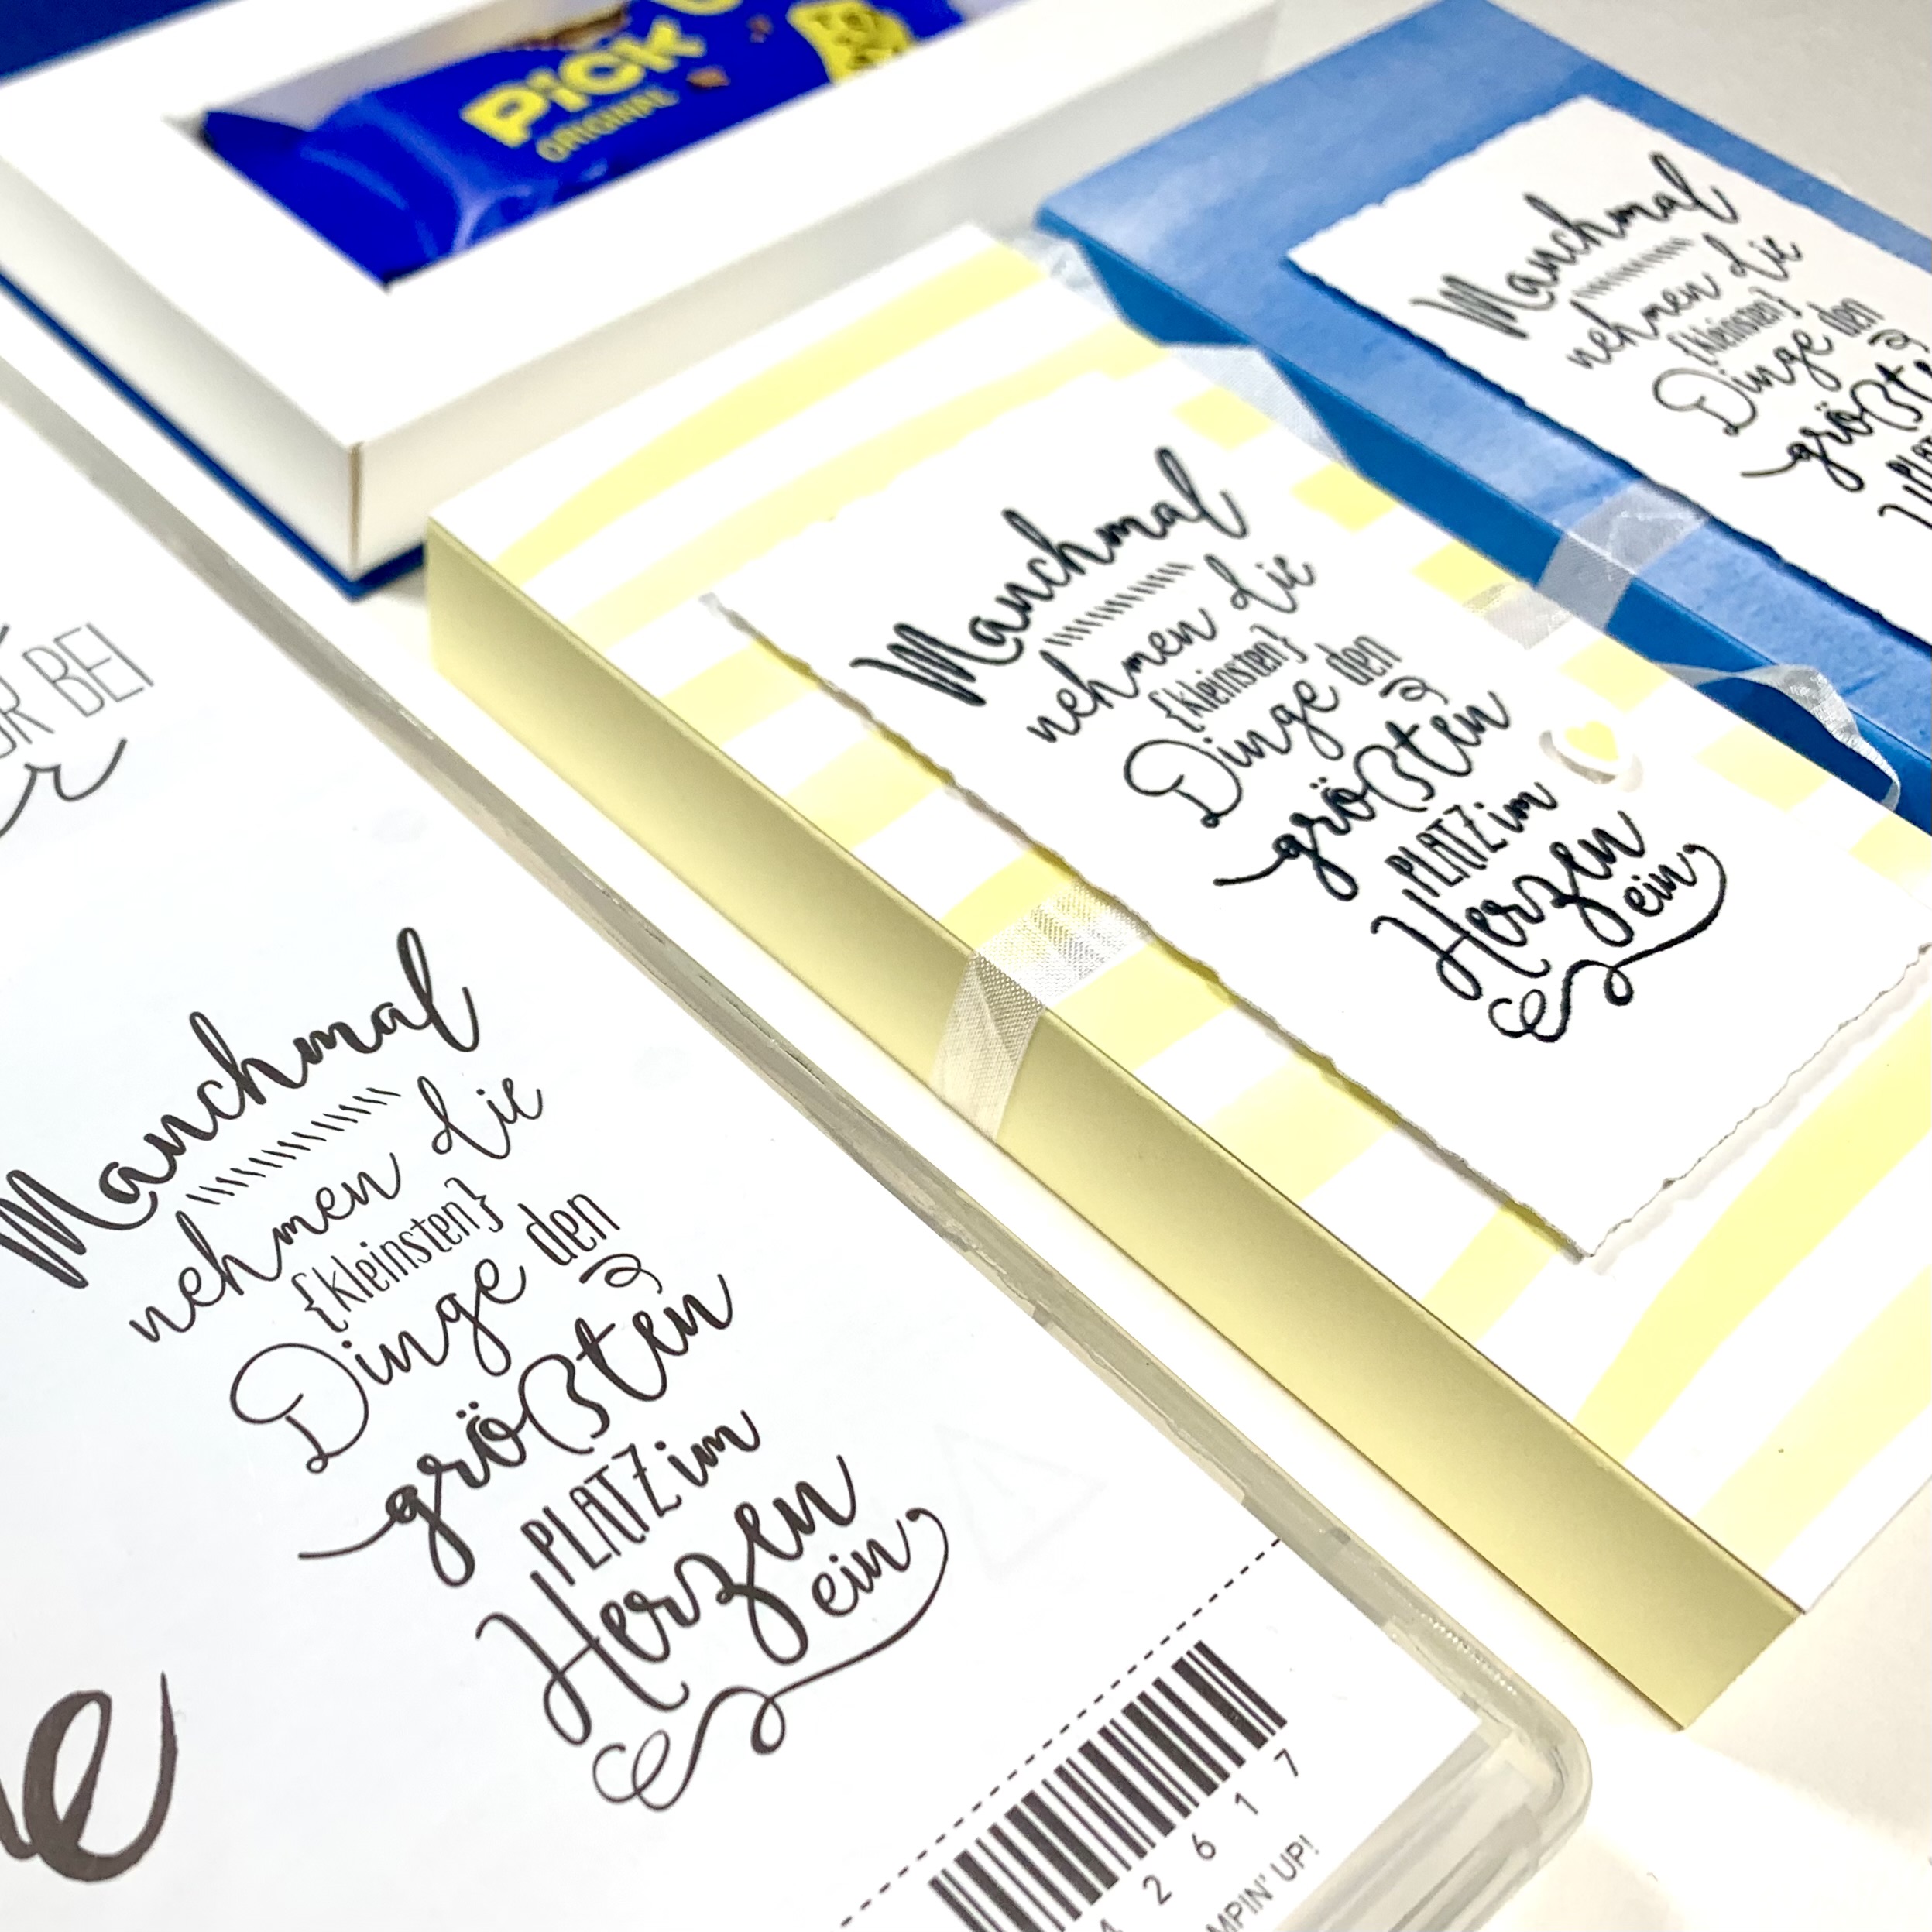 PiCK
ORIGINAL
Manchmal
nehmen die
{kleinsten}
Dinge den
Manchmal
nehmen die
{kleinsten}
Dinge den
größten
PLATZ im
Herzen
ein
BEI
Manchmal
nehmen die
{kleinsten}
Dinge den
größten
PLATZ im
Herzen
ein
2 6 1 7
UP!